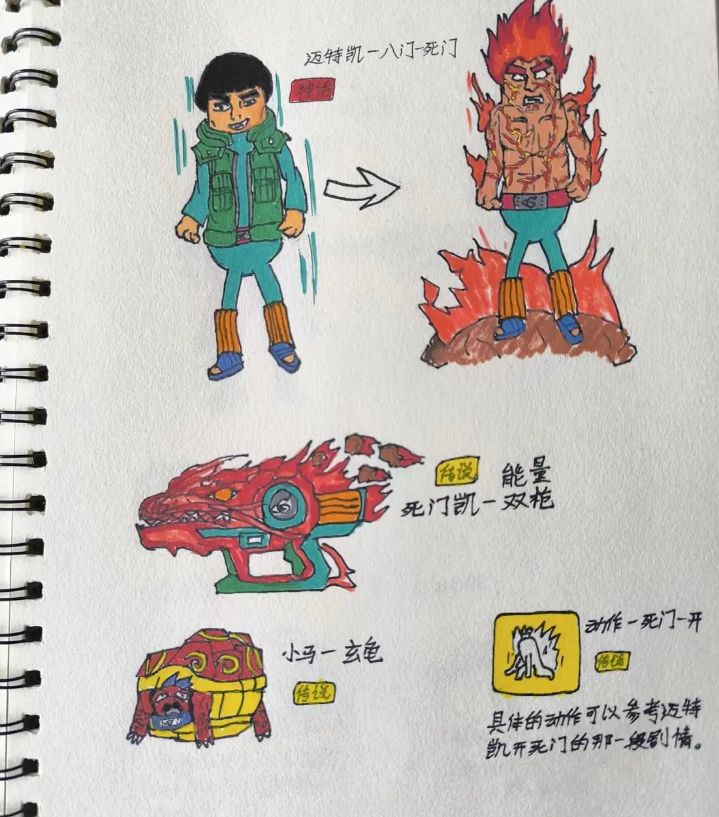 迈特凯一八门一死门
神话
传说
能量
死门凯一双枪
小马一玄龟
传说
动作一死门一开
传说
具体的动作可以参考迈特
凯开死门的那一段剧情。